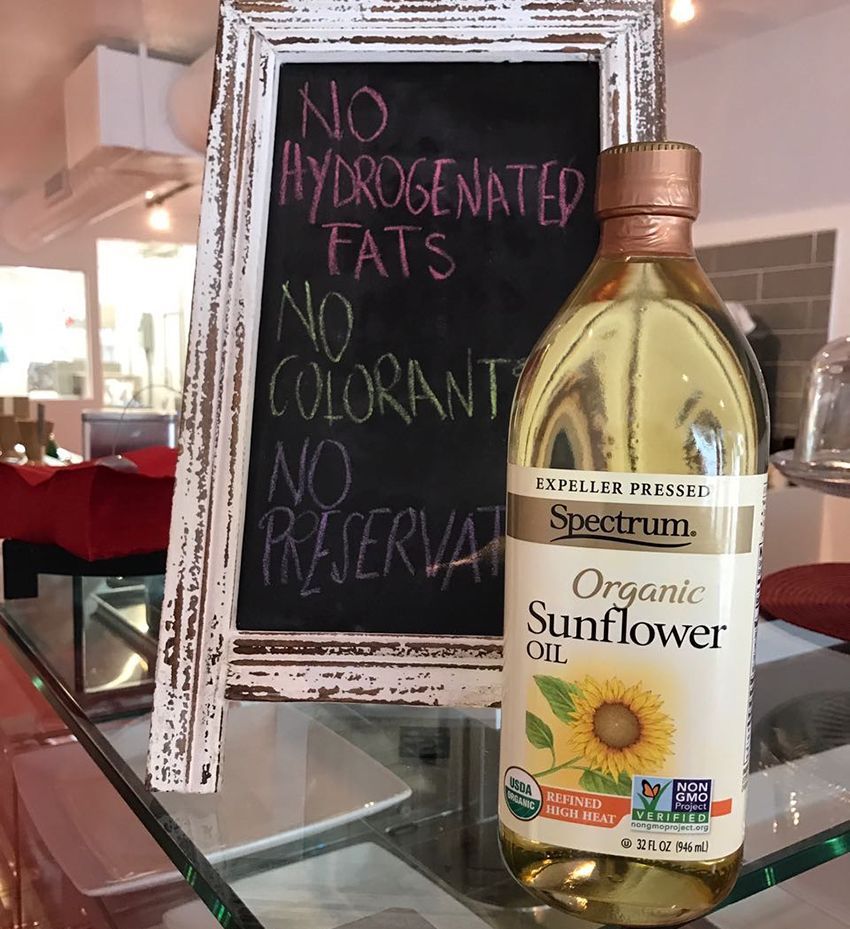 NO
HYDROGENATED
FATS
NO
COLORANT
NO
PRESERVAT
EXPELLER PRESSED
Spectrum®
Organic
Sunflower
OIL
USDA
ORGANIC
REFINED
HIGH HEAT
NON
GMO
Project
VERIFIED
nongmoproject.org
32 FL OZ (946 mL)